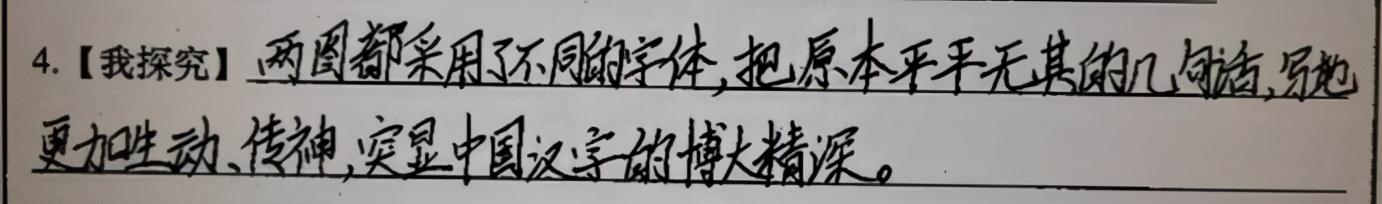 4.【我探究】两图都采用了不同的字体,把原本平平无其的几句话,写地
更加生动、传神,突显中国汉字的博大精深。